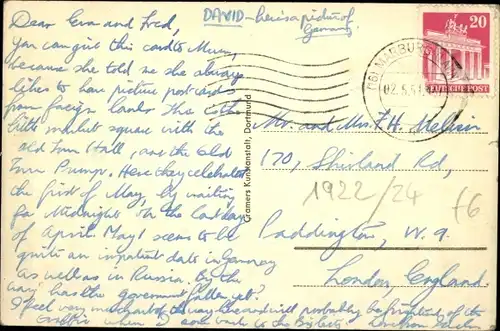 DAVID - here's a picture of
Germany
Dear Eva and Fred,
You can give this card to Mum,
because she told me she always
likes to have picture postcards
from foreign lands. The
little market square with the
old Town Hall, and the Old
Town Pump. Here they celebrated
the first of May, by waiting
for Midnight on the last day
of April. May 1 seems to be
quite an important date in Germany
as well as in Russia. By the
way has the government fallen yet?
I feel very much out of the way here and will probably be frightened of the
traffic when I come back to the
20
DEUTSCHE POST
MARBURG
02.5.51
Mr. and Mrs. F. H.
170, Shirland Rd,
Paddington, W. 9.
London, England.
1922/24
f6
Cramers Kunstanstalt, Dortmund